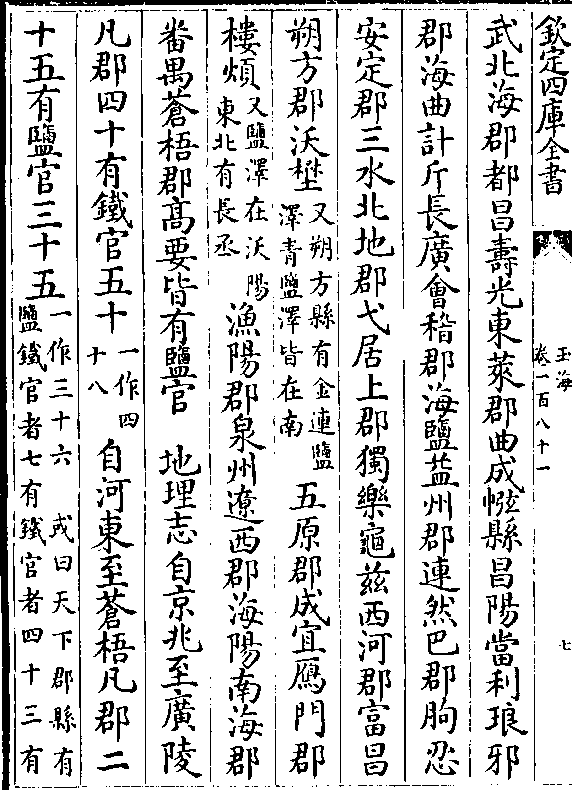 欽定四庫全書
玉海
卷一百八十一
七
武北海郡都昌壽光東萊郡曲成㡉縣昌陽當利琅邪
郡海曲計斤長廣會稽郡海鹽益州郡連然巴郡朐忍
安定郡三水北地郡弋居上郡獨樂龜兹西河郡富昌
朔方郡沃壄又朔方縣有金連鹽澤青鹽澤皆在南五原郡成宜鴈門郡
樓煩又鹽澤在沃陽東北有長丞漁陽郡泉州遼西郡海陽南海郡
番禺蒼梧郡髙要皆有鹽官 地理志自京兆至廣陵
凡郡四十有鐵官五十一作四十八自河東至蒼梧凡郡二
十五有鹽官三十五一作三十六 或曰天下郡縣有鹽鐵官者七有鐵官者四十三有